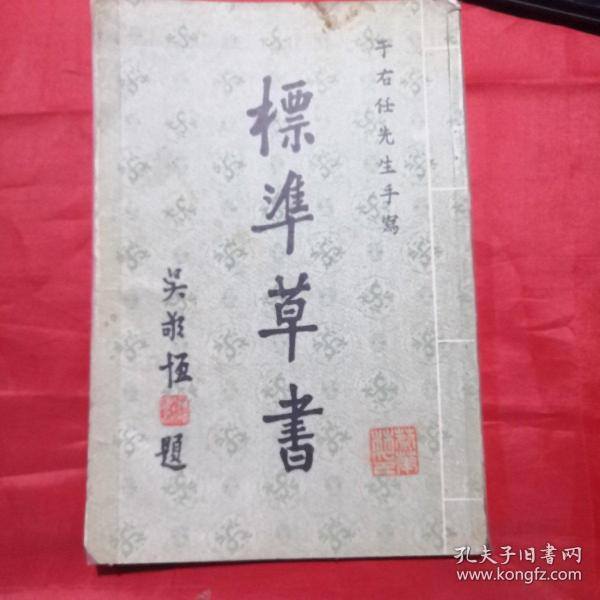 于右任先生手寫
標準草書
吳敬恆
題
孔夫子旧书网
www.kongfz.com